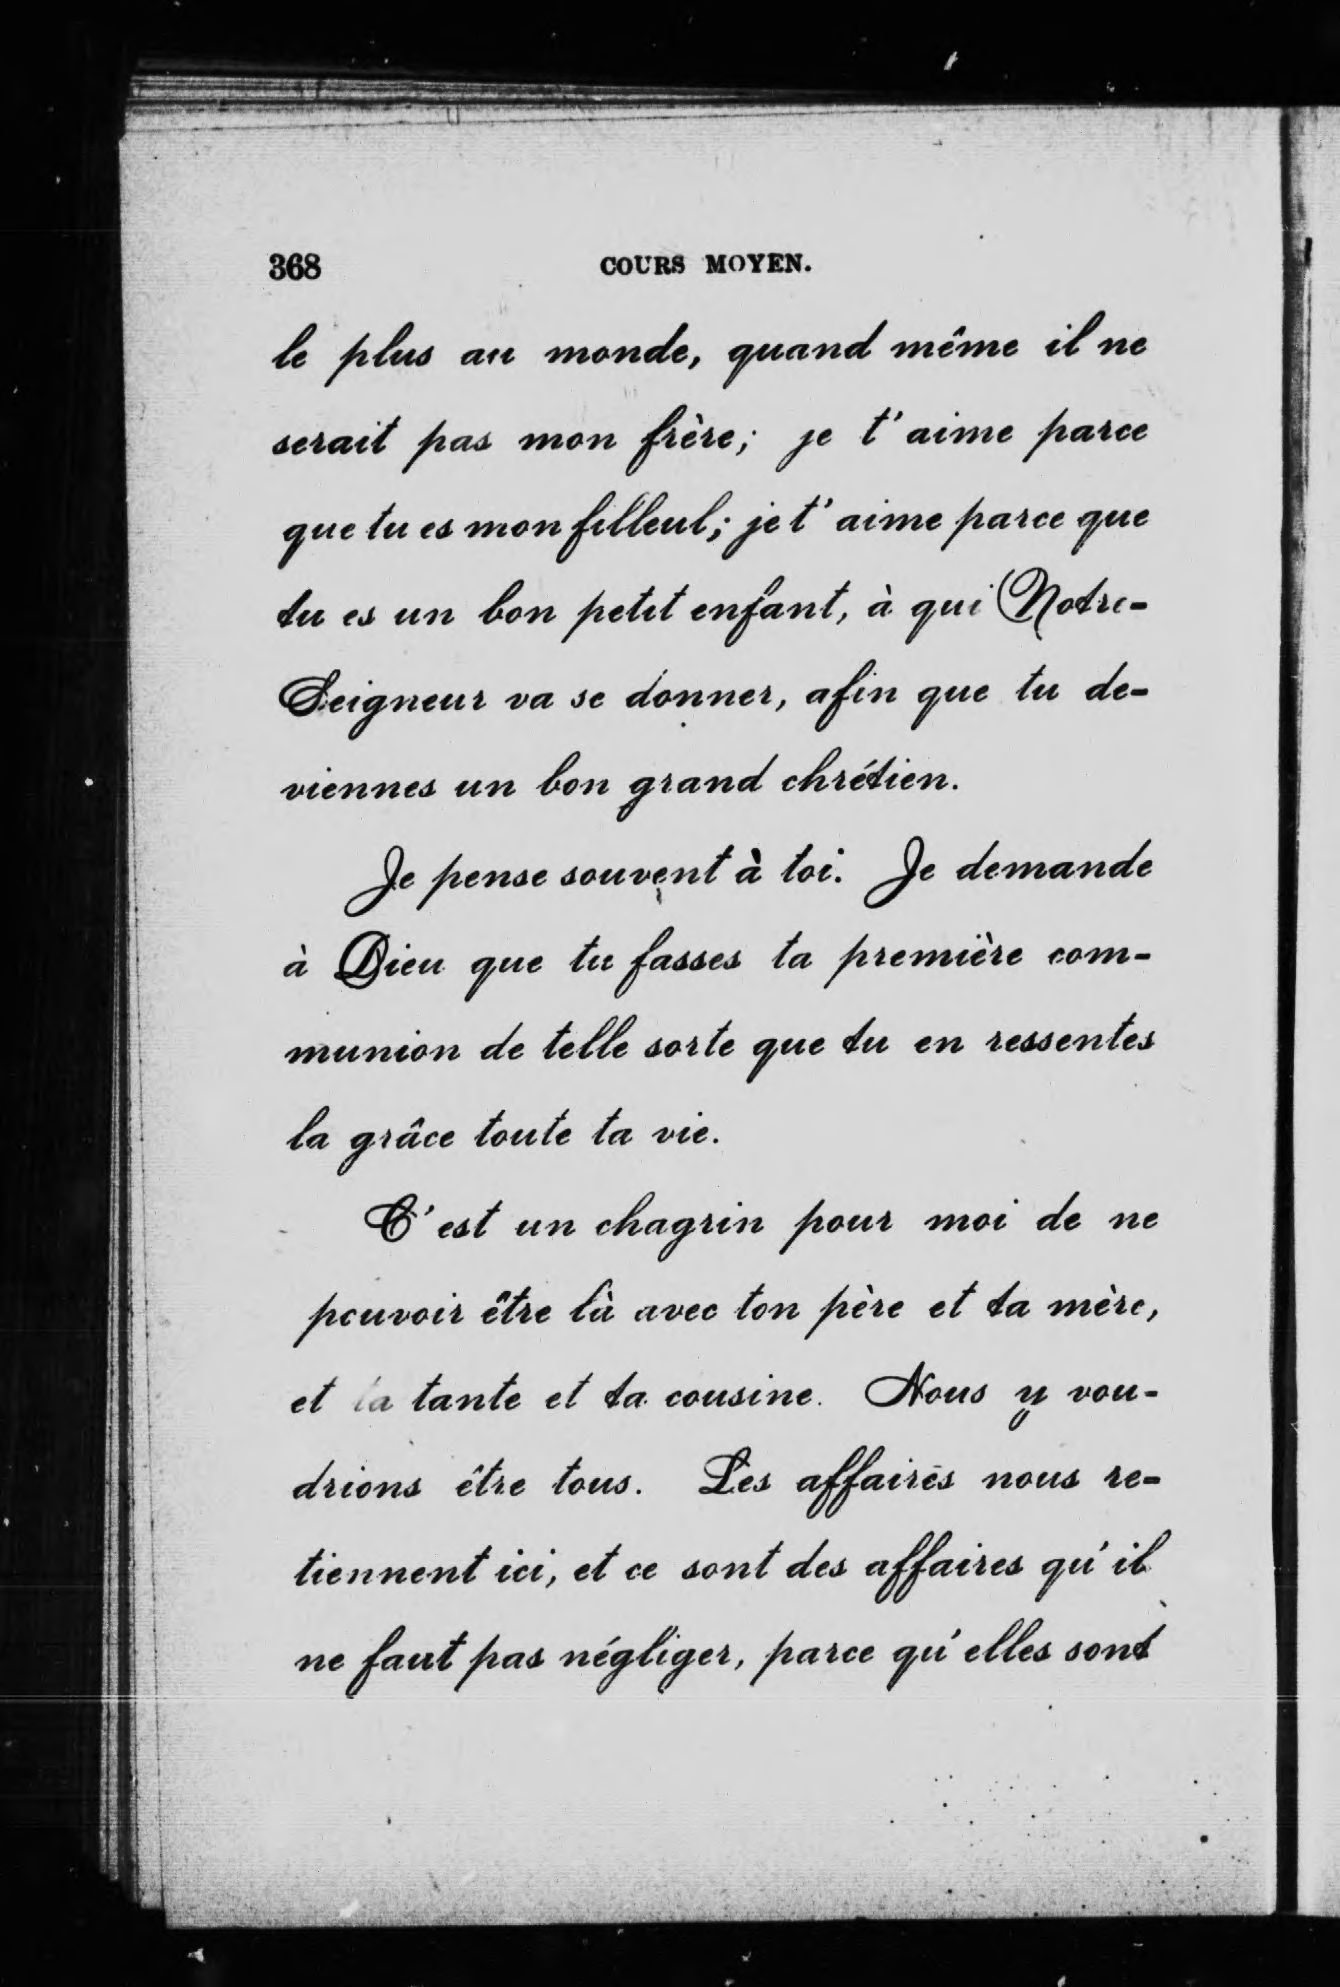 368 COURS MOYEN.
le plus au monde, quand même il ne
serait pas mon frère; je t'aime parce
que tu es mon filleul; je t'aime parce que
tu es un bon petit enfant, à qui Notre-
Seigneur va se donner, afin que tu de-
viennes un bon grand chrétien.
Je pense souvent à toi. Je demande
à Dieu que tu fasses ta première com-
munion de telle sorte que tu en ressentes
la grâce toute ta vie.
C'est un chagrin pour moi de ne
pouvoir être là avec ton père et ta mère,
et ta tante et ta cousine. Nous y vou-
drions être tous. Les affaires nous re-
tiennent ici, et ce sont des affaires qu'il
ne faut pas négliger, parce qu'elles sont